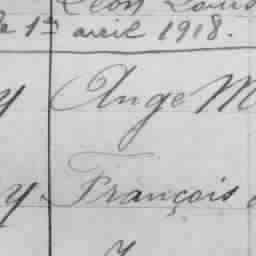 Léon Louis
le 1er avril 1918.
y Ange M
y François